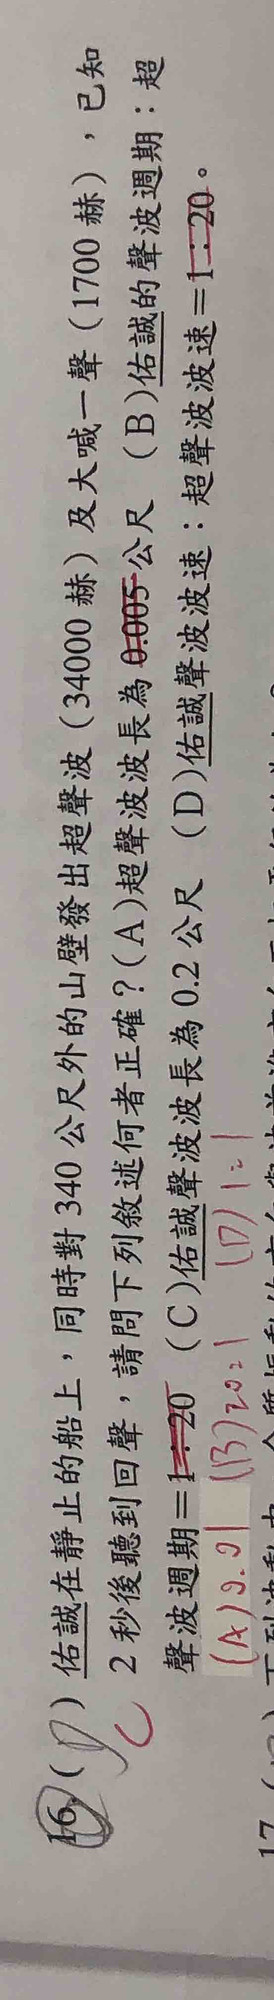 16.( D ) 佑誠在靜止的船上，同時對 340 公尺外的山壁發出超聲波（34000 赫）及大喊一聲（1700 赫），已知
C
2 秒後聽到回聲，請問下列敘述何者正確？(A)超聲波波長為 0.005 公尺 (B)佑誠的聲波週期：超
聲波週期＝1：20 (C)佑誠聲波波長為 0.2 公尺 (D)佑誠聲波波速：超聲波波速＝1：20。
(A) 0.01 (B) 20=1 (D) 1=1